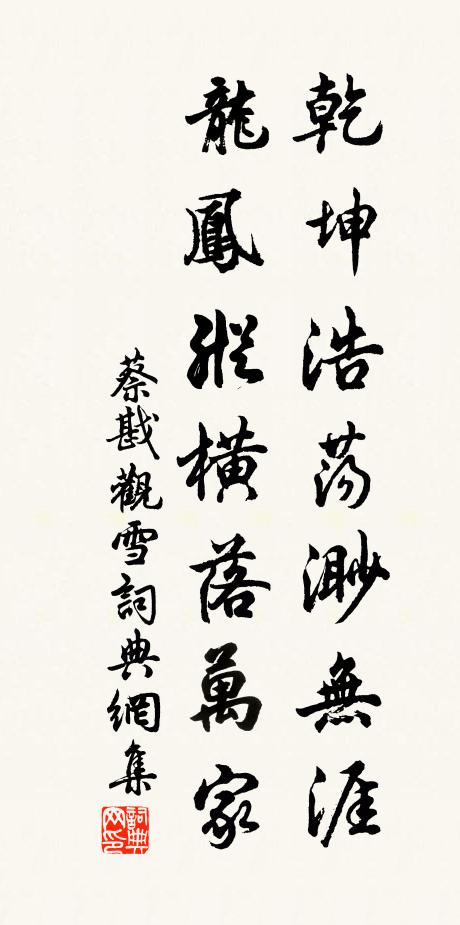 乾坤浩荡渺無涯
龍鳳縱橫落萬家
蔡戡觀雪詞典網集
詞典网印